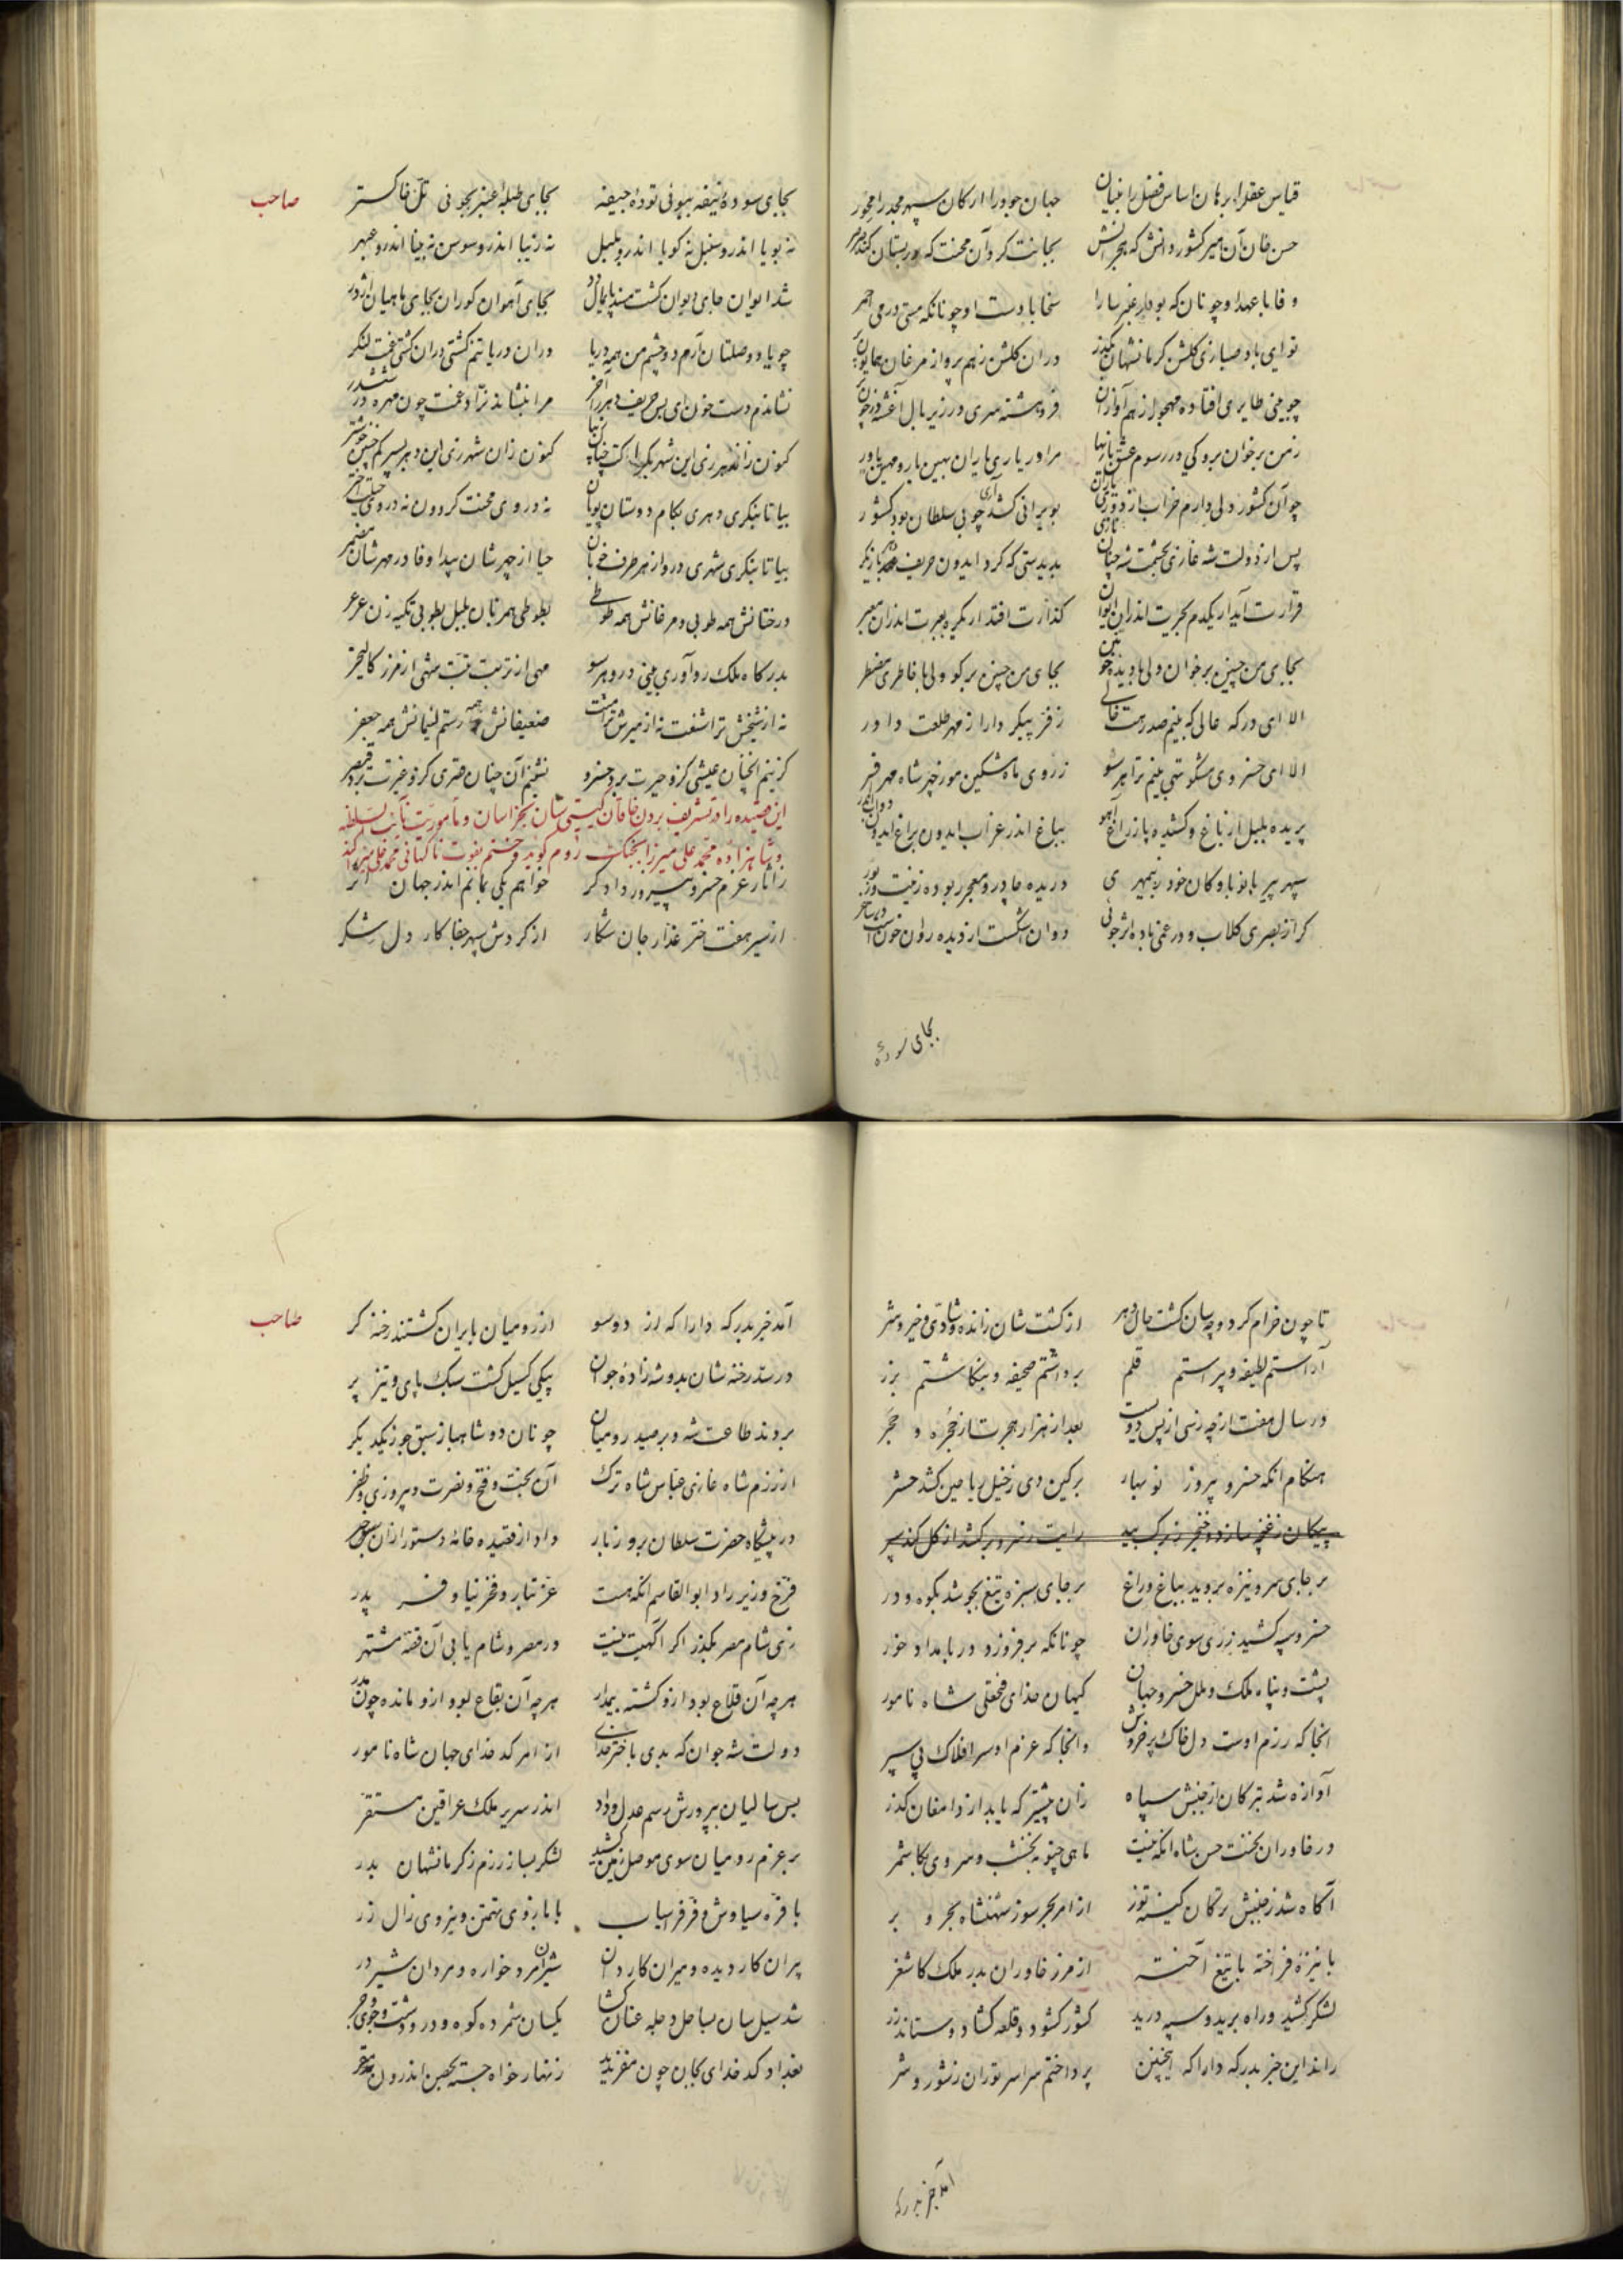 قیاس عقل را برهان اساس فضل را بنیان جهان جود را ارکان سپهر مجد را محور
حسن خان آن امیر کشور دانش که هجرانش بجانت کرد آن محنت که در بستان کند صرصر
وفا با عهد او چونان که بو در عنبر سارا سخا با دست او چونانکه مستی در می احمر
تو ای باد صبا زی گلشن کرمانشهان بگذر در آن گلشن ز هم پرواز مرغان همایون پر
چو بینی طایری افتاده مهجور از هم آوازان فروهشته سری در زیر بال آغشته در خون پر
ز من برخوان برو کی در رسوم عشقبازیها مرا در یاری یاران بهین یار و مهین یاور
چو آن کشور دلی دارم خراب از دوری یاران بویرانی کشد آری چو بی سلطان بود کشور
پس از دولت شه غازی بحشمت شه چنان بدیدستی که کرد ایدون حریف
قرارت آید ار یکدم بحیرت اندر آن ایوان گذارت افتد ار یکره بعبرت اندر آن معبر
بجای من چنین برخوان ولی با دیده خونین بجای من چنین برگو ولی با خاطری مضطر
الا ای درگه عالی که بینم صدرت خالی ز فر پیکر دارا ز مهر طلعت داور
الا ای خسروی مشکو تهی بینم ترا هر سو ز روی ماه مشکین مو ز چهر شاه مهر افسر
پریده بلبل از باغ و کشیده پا ز راغ آهو بباغ اندر غراب ایدون براغ ایدون
سپهر پیر با نوباوگان خود ز بیمهری دریده چادر و معجر ربوده زینت و زیور
گر از بصری گلاب و در غمی باده اثر جوئی روان اشکست از دیده روان خونست
بجای سوده
صاحب
بجای سوده نیفه ببوئی توده جیفه بجای طبله عنبر بجوئی تل خاکستر
نه بویا اندرو سنبل نه گویا اندرو بلبل نه زیبا اندرو سوسن نه بینا اندرو عبهر
شد ایوان جای دیوان گشت مسند پایمال دد بجای آهوان گوران بجای ماهیان اژدر
چو یاد وصلتان آرم دو چشم من همه دریا در آن دریا تنم کشتی در آن کشتی غمت لنگر
نشاندم دست خون ای بس حریف دهر را آخر مرا بنشاند نراد غمت چون مهره در ششدر
بیا تا بنگری دهری بکام دوستان پویا نه در وی محنت گردون نه در وی
بیا تا بنگری شهری درو از هر طرف خوبان حیا از چهرشان پیدا وفا در مهرشان مضمر
درختانش همه طوبی و مرغانش همه طوطی بطوطی همزبان بلبل بطوبی تکیه زن عرعر
بدرگاه ملک رو آوری بینی درو هر سو مهی از تربت تبت شهی از مرز کالنجر
ضعیفانش همه رستم لئیمانش همه جعفر
گزینم آنچنان عیشی کزو حیرت برد خسرو نشینم آن چنان قصری کزو غیرت برد قیصر
این قصیده را در تشریف بردن خاقان گیتی ستان بخراسان و مأموریت نایب السلطنه
و شاهزاده محمد علی میرزا بجنگ روم گوید و ختم بفوت ناگهانی محمد علی میرزا کند
ز آثار عزم خسرو پیروز دادگر خواهم یکی بمانم اندر جهان اثر
از سیر هفت اختر غدار جان شکار از گردش سپهر جفا کار دل شکر
تا چون خرام کرد و چه سان گشت حال دهر از گشت شان زاندوه و شادی و خیر و شر
آراستم لطیفه و پیراستم قلم برداشتم صحیفه و بنگاشتم بزر
در سال هفت ارچه زسی از پس دویست بعد از هزار هجرت از حجره و حجر
هنگام آنکه خسرو پیروز نو بهار بر کین دی ز خیل ریاحین کشد حشر
پیکان ز غنچه سازد و خنجر ز برگ بید رایت ز سرو برکشد از گل کند سپر
بر جای سرو نیزه بروید بباغ و راغ بر جای سبزه تیغ بجوشد بکوه و در
خسرو سپه کشید ز ری سوی خاوران چونانکه بر فروزد در بامداد خور
پشت و پناه ملک و ملل خسرو جهان کیهان خدای فتحعلی شاه نامور
آنجا که رزم اوست دل خاک پر خروش و آنجا که عزم او سر افلاک پی سپر
آوازه شد بترکان از جنبش سپاه زان پیشتر که باید از دامغان گذر
در خاوران بتخت حسن شاه آنکه نیست ماهی چنو بنخشب و سروی بکاشمر
آگاه شد ز جنبش ترکان کینه توز از امر بحر سوز شهنشاه بحر و بر
با نیزه فراخته با تیغ آخته از مرز خاوران بدر ملک کاشغر
لشکر کشید و راه برید و سپه درید کشور گشود و قلعه گشاد و ستاند زر
راند این خبر بدرگه دارا که اینچنین پرداختم سراسر توران ز شور و شر
آمد خبر بدرگه
صاحب
آمد خبر بدرگه دارا که از دو سو از رومیان بایران گشتند رخنه گر
در سد رخنه شان بدو شه زاده جوان پیکی گسیل گشت سبک پای و تیز پر
بردند طاعت شه و بر صید رومیان چونان دو شاهباز سبق جو ز یکدگر
از رزم شاه غازی عباس شاه ترک آن بخت و فتح و نصرت و پیروزی و ظفر
در پیشگاه حضرت سلطان بروز بار داد از قصیده خانه دستور از آن خبر
فرخ وزیر راد ابو القاسم آنکه هست عز تبار و فخر نیا و فر پدر
زی شام مصر بگذر اگر آگهیت نیست در مصر و شام یابی آن قصه مشتهر
هر چه آن قلاع بود ازو گشته بیمدار هر چه آن بقاع بود ازو مانده چون مدر
دولت شه جوان که بدی باختر خدای از امر کد خدای جهان شاه نامور
بس سالیان بپرورش رسم عدل و داد اندر سریر ملک عراقین مستقر
بر عزم رومیان سوی موصل زمین کشید لشکر بساز رزم ز کرمانشهان بدر
با فره سیاوش و فر فراسیاب با بازوی تهمتن و نیروی زال زر
پیران کار دیده و میران کار دان شیران مرد خواره و مردان شیر در
شد سیل سان بساحل دجله عنان گشا یکسان شمرده کوه و در و دشت و جوی و جر
بغداد کد خدای بجان چون مفر ندید زنهار خواه جسته بحصن اندرون مقر